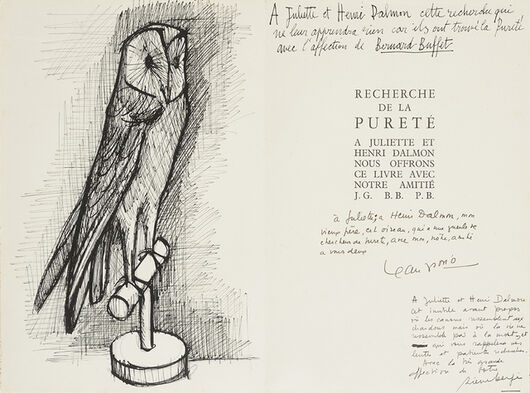 A Juliette et Henri Dalmon cette recherche qui
ne leur apprendra rien car ils ont trouvé la Pureté
avec l'affection de Bernard Buffet
RECHERCHE
DE LA
PURETÉ
A JULIETTE ET
HENRI DALMON
NOUS OFFRONS
CE LIVRE AVEC
NOTRE AMITIÉ
J.G. B.B. P.B.
à Juliette, à Henri Dalmon, mon
vieux frère, cet oiseau, qui a une gueule de
chercheur de pureté, avec mon, notre, amitié
à vous deux
Jean Giono
A Juliette et Henri Dalmon
cet inutile avant propos
où les canons ressemblent aux
chardons mais où la
ressemble pas à la
qui vous rappellera
et patiente recherche
avec la très grande
affection de votre
Pierre Bergé